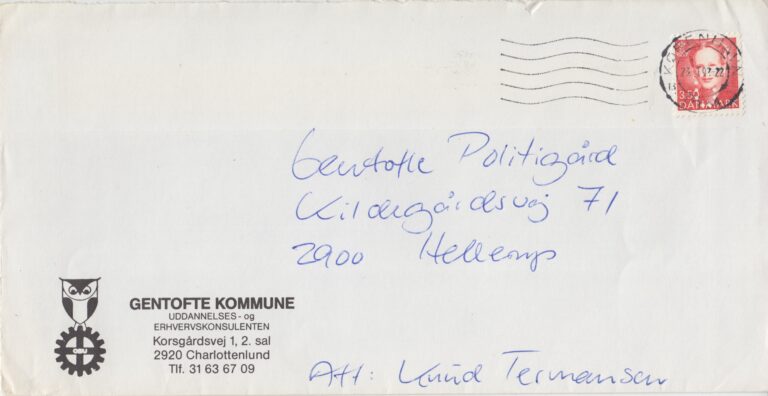 KØBENHAVN
350
DANMARK
Gentofte Politigård
Kildegårdsvej 71
2900 Hellerup
GENTOFTE KOMMUNE
UDDANNELSES- og
ERHVERVSKONSULENTEN
Korsgårdsvej 1, 2. sal
2920 Charlottenlund
Tlf. 31 63 67 09
Att: Knud Termansen